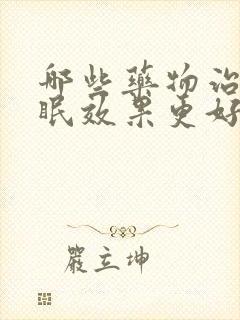 哪些藥物治
眠效果更好
嚴立坤